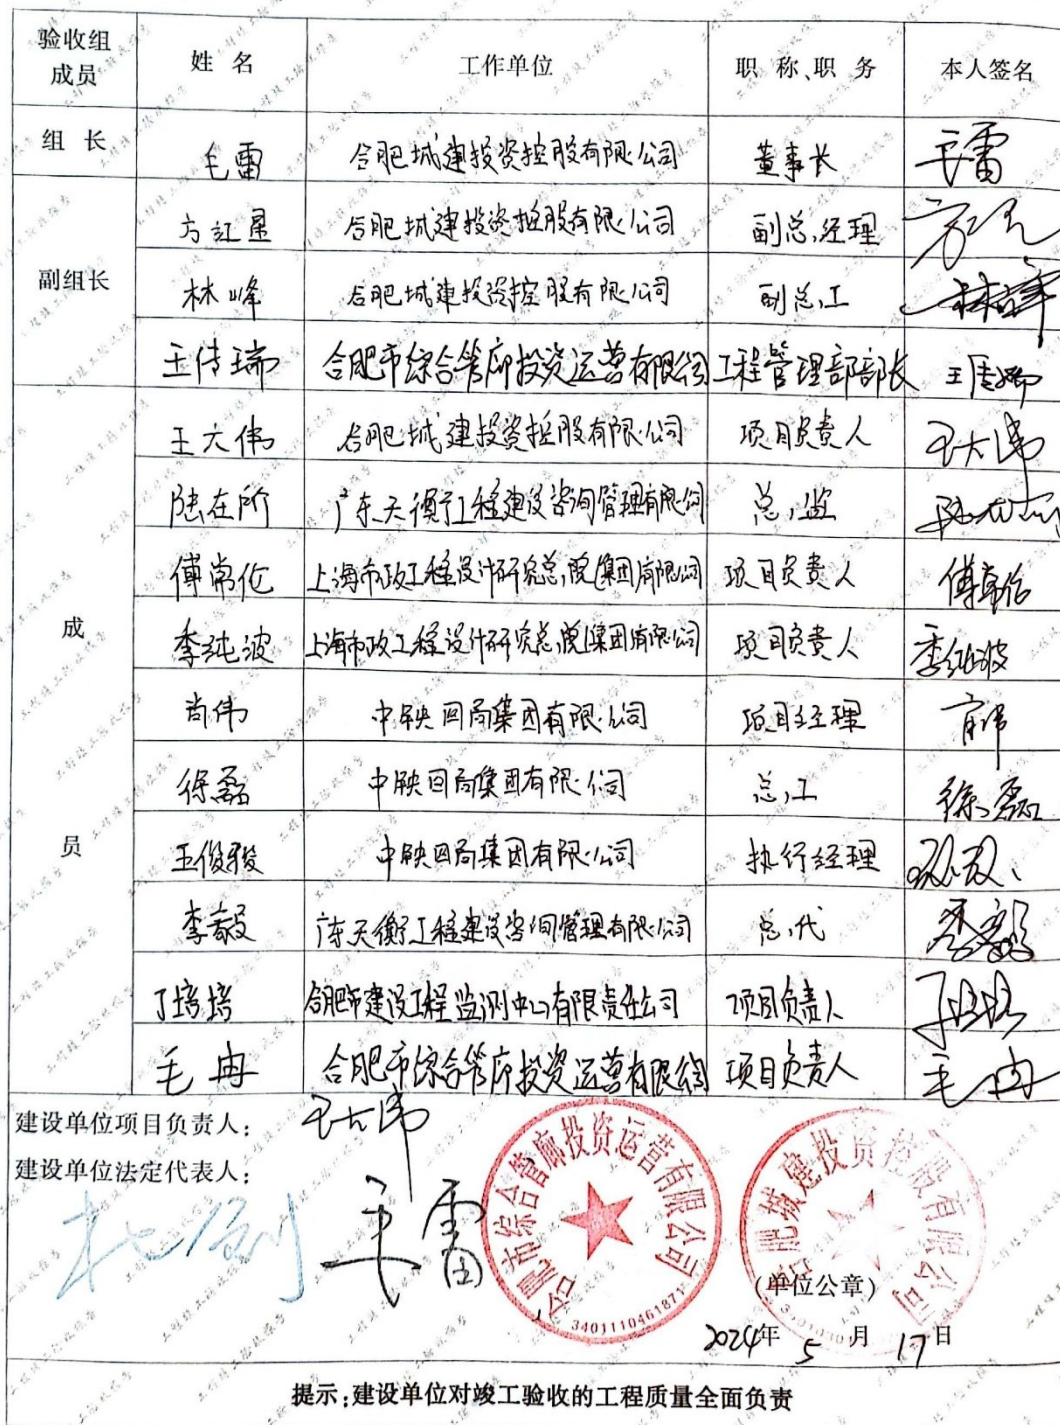 验收组成员 姓 名 工作单位 职 称、职 务 本人签名
组 长 毛雷 合肥城建投资控股有限公司 董事长 毛雷
副组长 方红星 合肥城建投资控股有限公司 副总经理
林峰 合肥城建投资控股有限公司 副总工 林峰
王传瑞 合肥市综合管廊投资运营有限公司 工程管理部部长 王传瑞
成员 王大伟 合肥城建投资控股有限公司 项目负责人 王大伟
陆在所 广东天衡工程建设咨询管理有限公司 总监 陆在所
傅常伦 上海市政工程设计研究总院(集团)有限公司 项目负责人
李纯波 上海市政工程设计研究总院(集团)有限公司 项目负责人 李纯波
肖伟 中铁四局集团有限公司 项目经理 肖伟
徐磊 中铁四局集团有限公司 总工 徐磊
王俊骏 中铁四局集团有限公司 执行经理
李毅 广东天衡工程建设咨询管理有限公司 总代 李毅
丁培培 合肥市建设工程监测中心有限责任公司 项目负责人 丁培培
毛冉 合肥市综合管廊投资运营有限公司 项目负责人 毛冉
建设单位项目负责人: 王大伟
建设单位法定代表人:
毛雷
合肥市综合管廊投资运营有限公司
3401110461871
合肥城建投资控股有限公司
(单位公章)
2024年 5 月 17 日
提示:建设单位对竣工验收的工程质量全面负责